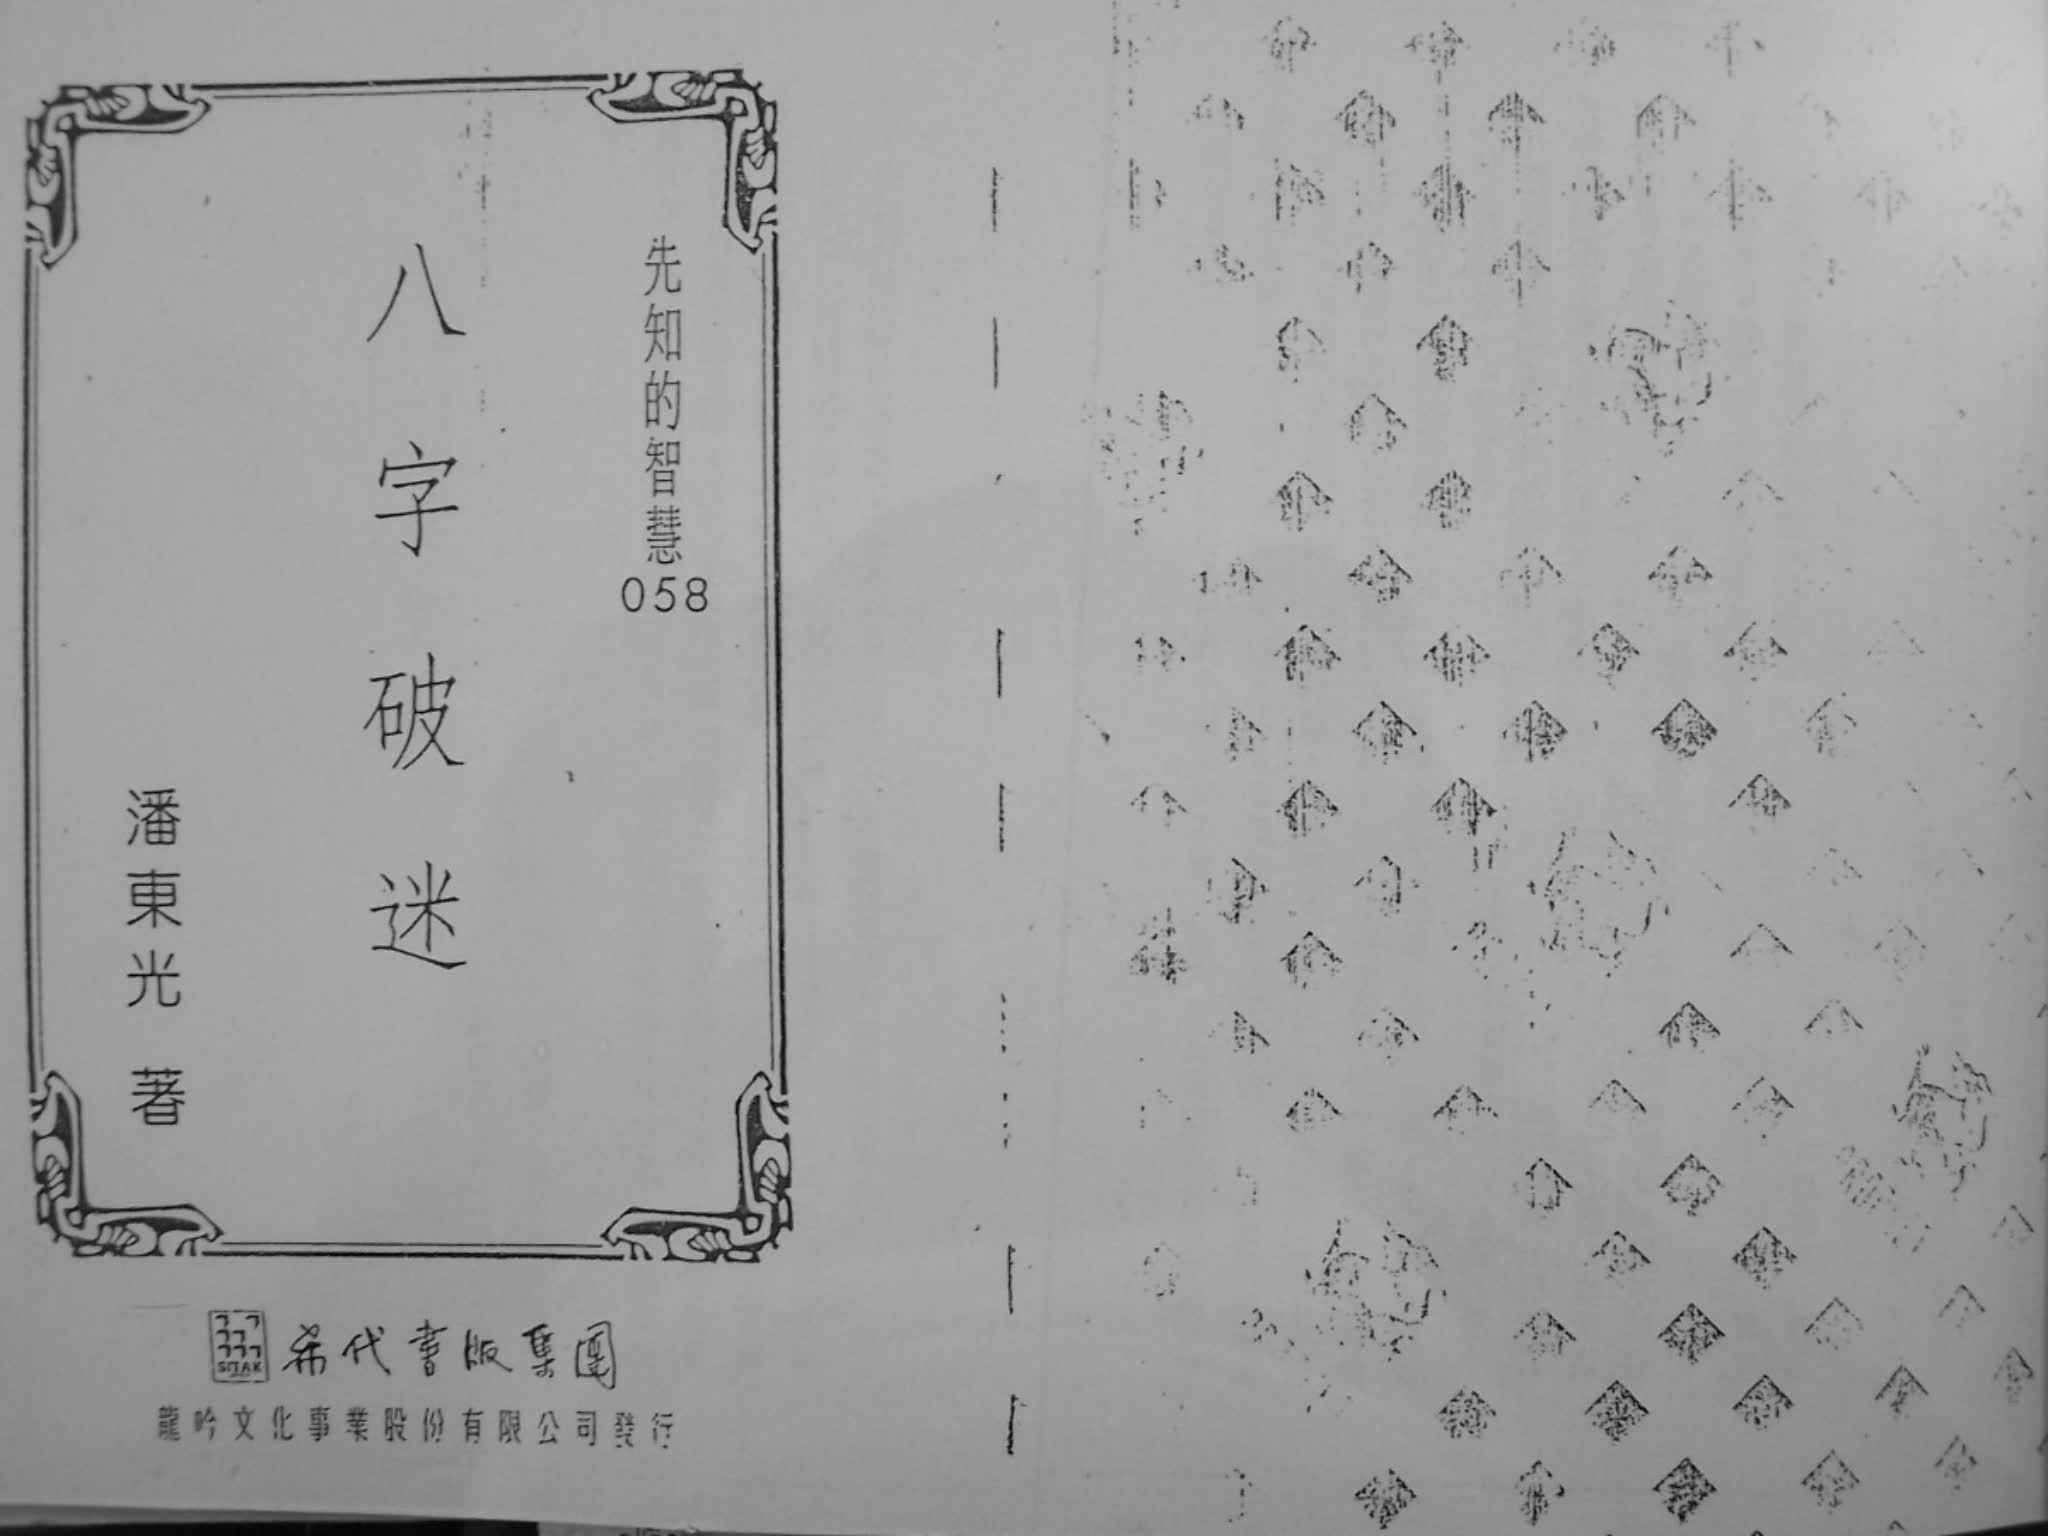 先知的智慧
058
八字破迷
潘東光 著
SITAK
希代書版集團
龍吟文化事業股份有限公司發行